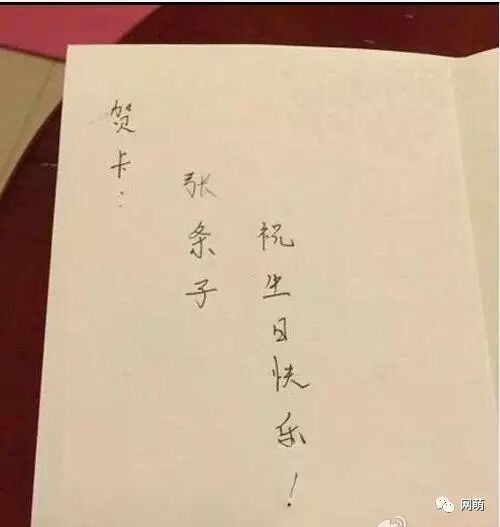 贺卡：
张条子
祝生日快乐！
网萌